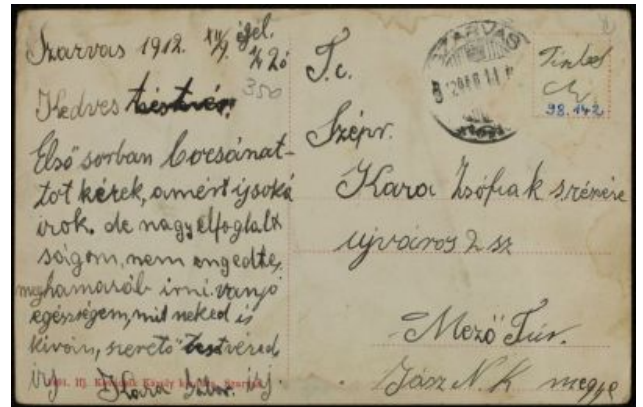 Szarvas 1912. XII/9. éjel.
350
Kedves testvér.
Első sorban bocsánat-
tot kérek, amért ijsoká
irok. de nagy elfoglalt
ságom, nem engedte,
meghamaráb irni. vanjó
egésségem, mit neked is
kiván, szerető testvéred
irj Kara irj.
T.c.
Szépr.
Kara Zsófia k. s.
ujváros 2 sz
Mező Túr.
Jász N. K megye
SZARVAS
98.142